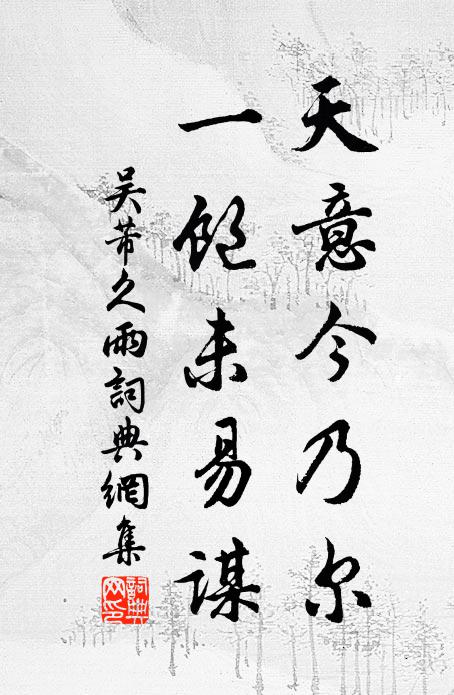 天意今乃尔
一飽未易謀
吴芾久雨詞典網集
詞典网印